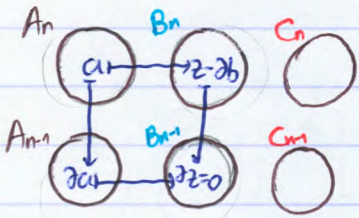 Aₙ Bₙ Cₙ
a z-∂b
Aₙ₋₁ Bₙ₋₁ Cₙ₋₁
∂a ∂z=0